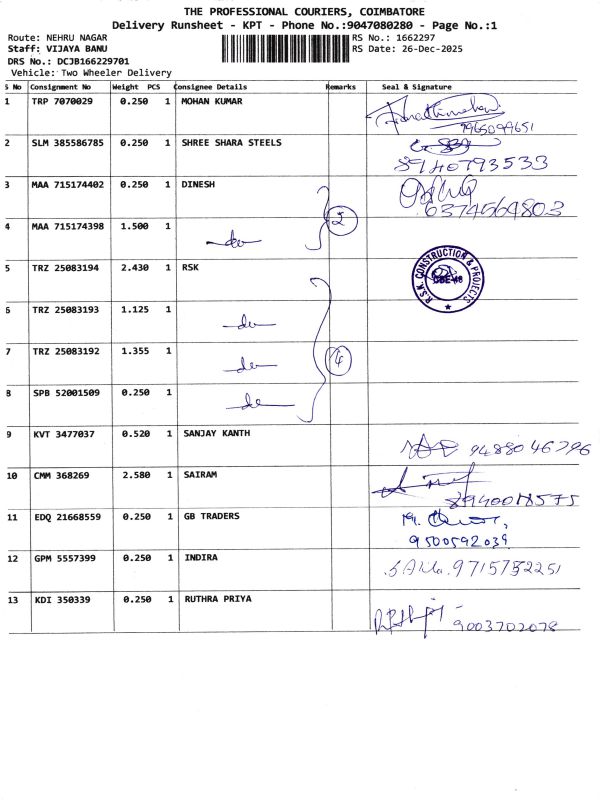 THE PROFESSIONAL COURIERS, COIMBATORE
Delivery Runsheet - KPT - Phone No.:9047080280 - Page No.:1
Route: NEHRU NAGAR
RS No.: 1662297
Staff: VIJAYA BANU
RS Date: 26-Dec-2025
DRS No.: DCJB166229701
Vehicle: Two Wheeler Delivery
S No Consignment No Weight PCS Consignee Details Remarks Seal & Signature
1 TRP 7070029 0.250 1 MOHAN KUMAR
7965099651
2 SLM 385586785 0.250 1 SHREE SHARA STEELS
8940793533
3 MAA 715174402 0.250 1 DINESH
6374564803
4 MAA 715174398 1.500 1 do 2
5 TRZ 25083194 2.430 1 RSK
R.S.K. CONSTRUCTION & PROJECTS
6 TRZ 25083193 1.125 1 do
7 TRZ 25083192 1.355 1 do 4
8 SPB 52001509 0.250 1 do
9 KVT 3477037 0.520 1 SANJAY KANTH 9488046796
10 CMM 368269 2.580 1 SAIRAM
8940018575
11 EDQ 21668559 0.250 1 GB TRADERS
9500592039
12 GPM 5557399 0.250 1 INDIRA 9715732251
13 KDI 350339 0.250 1 RUTHRA PRIYA
9003702078